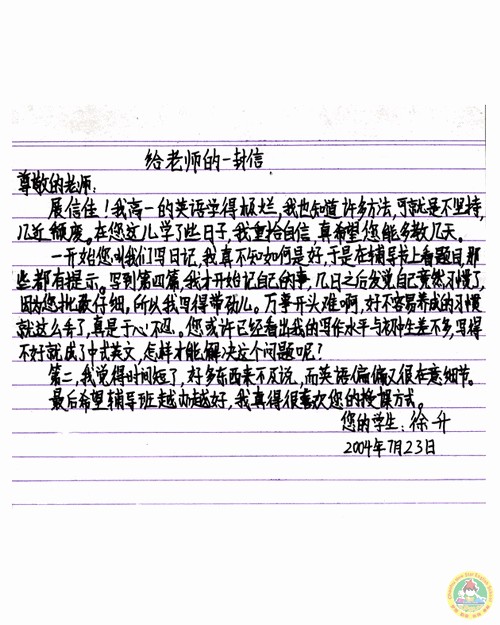 给老师的一封信
尊敬的老师:
展信佳!我高一的英语学得极烂,我也知道许多方法,可就是不坚持,
几近颓废。在您这儿学了些日子,我重拾自信,真希望您能多教几天。
一开始您叫我们写日记,我真不知如何是好,于是在辅导书上看题目,那
些都有提示。写到第四篇,我才开始记自己的事,几日之后发觉自己竟然习惯了,
因为您批最仔细,所以我写得带劲儿。万事开头难啊,好不容易养成的习惯
就这么丢了,真是于心不忍。您或许已经看出我的写作水平与初中生差不多,写得
不好就成了中式英文,怎样才能解决这个问题呢?
第二,我觉得时间短了,好多东西来不及说,而英语偏偏又很在意细节。
最后希望辅导班越办越好,我真得很喜欢您的授课方式。
您的学生:徐升
2004年7月23日